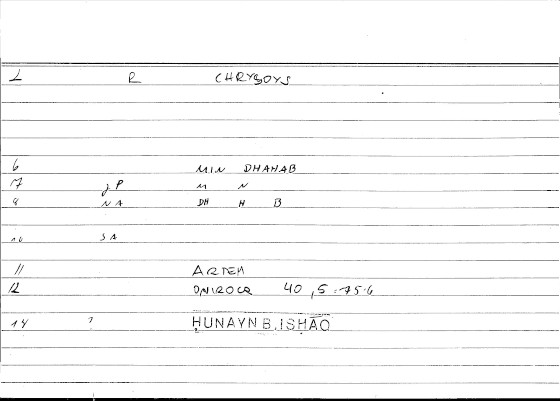 1 R CHRYSOYS
6 MIN DHAHAB
7 JP M N
8 NA DH H B
10 SA
11 ARTEM
12 ONIROCR 40,5-75.6
14 ? ḤUNAYN B. ISḤĀQ